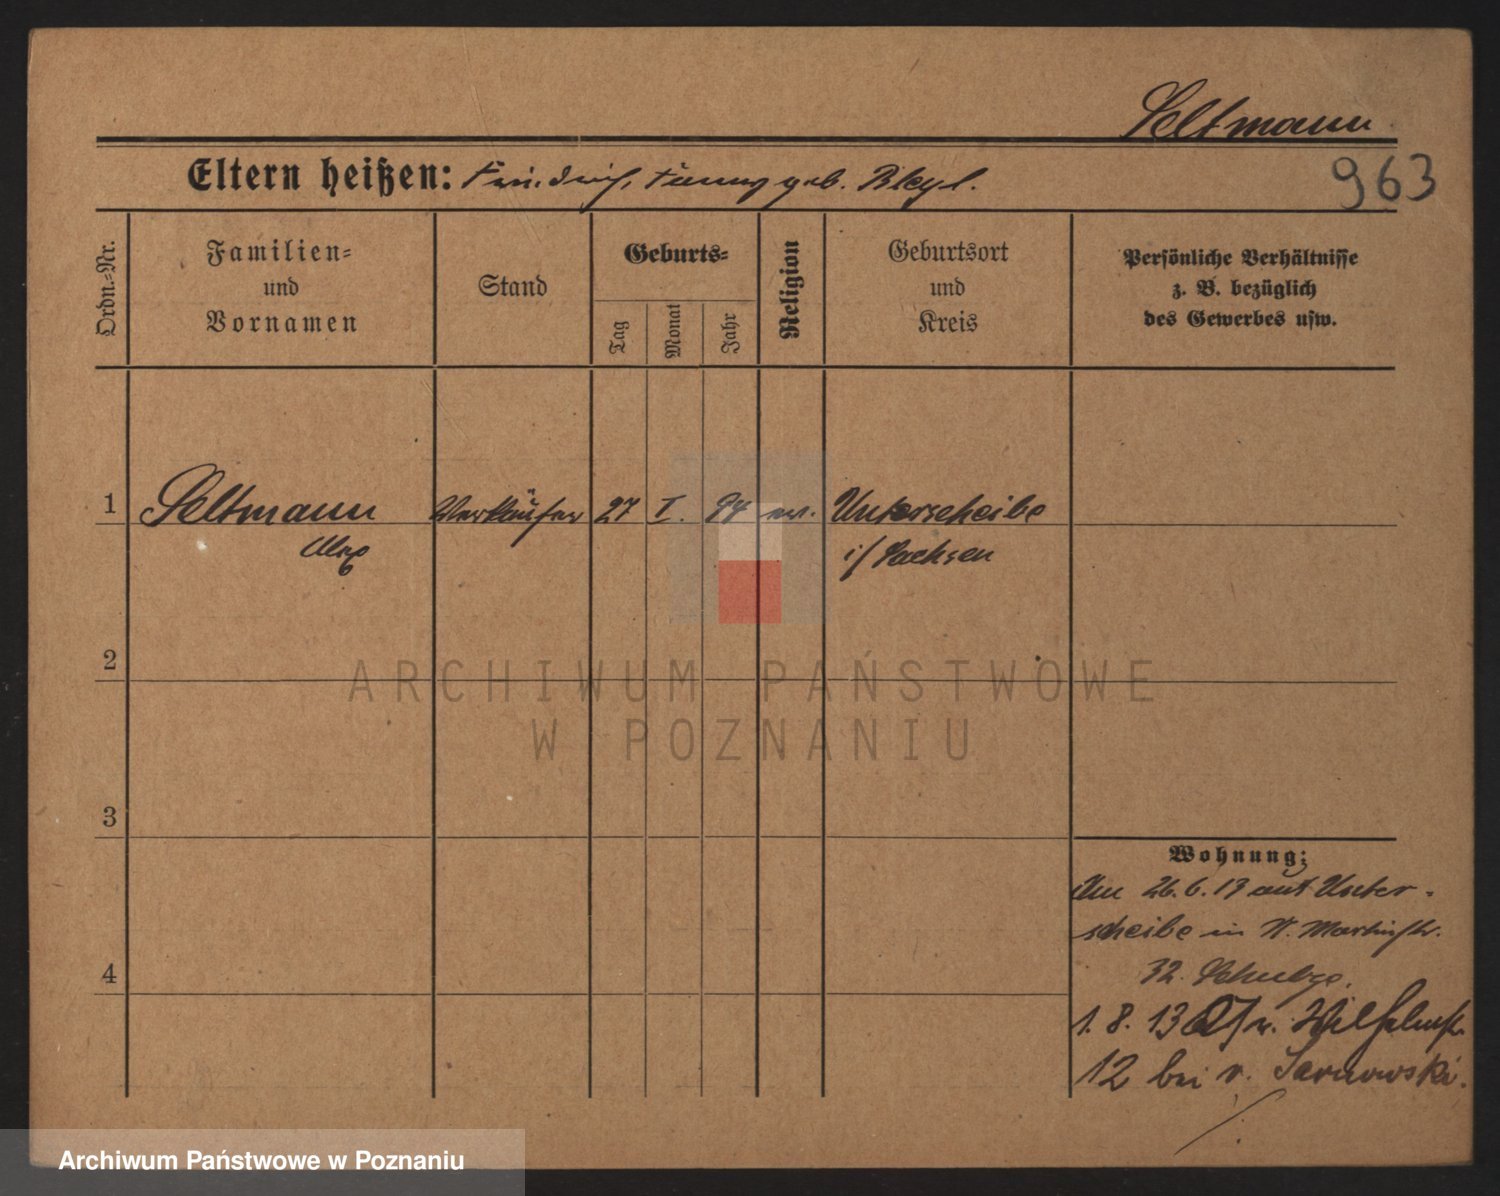 Seltmann
963
Eltern heißen: Friedrich, Fanny geb. Bleyl.
Ordn.-Nr.
Familien-
und
Vornamen
Stand
Geburts-
Tag
Monat
Jahr
Religion
Geburtsort
und
Kreis
Persönliche Verhältnisse
z. B. bezüglich
des Gewerbes usw.
1
Seltmann
Verkäufer
27
I.
94
ev.
Unterscheibe
Max
i/ Sachsen
2
ARCHIWUM PAŃSTWOWE
W POZNANIU
3
Wohnung:
Am 26.6.13 aus Unter-
scheibe in St. Martinstr.
4
32.
1. 8. 13 Wilhelmstr.
12 bei v. Sarnowski.
Archiwum Państwowe w Poznaniu